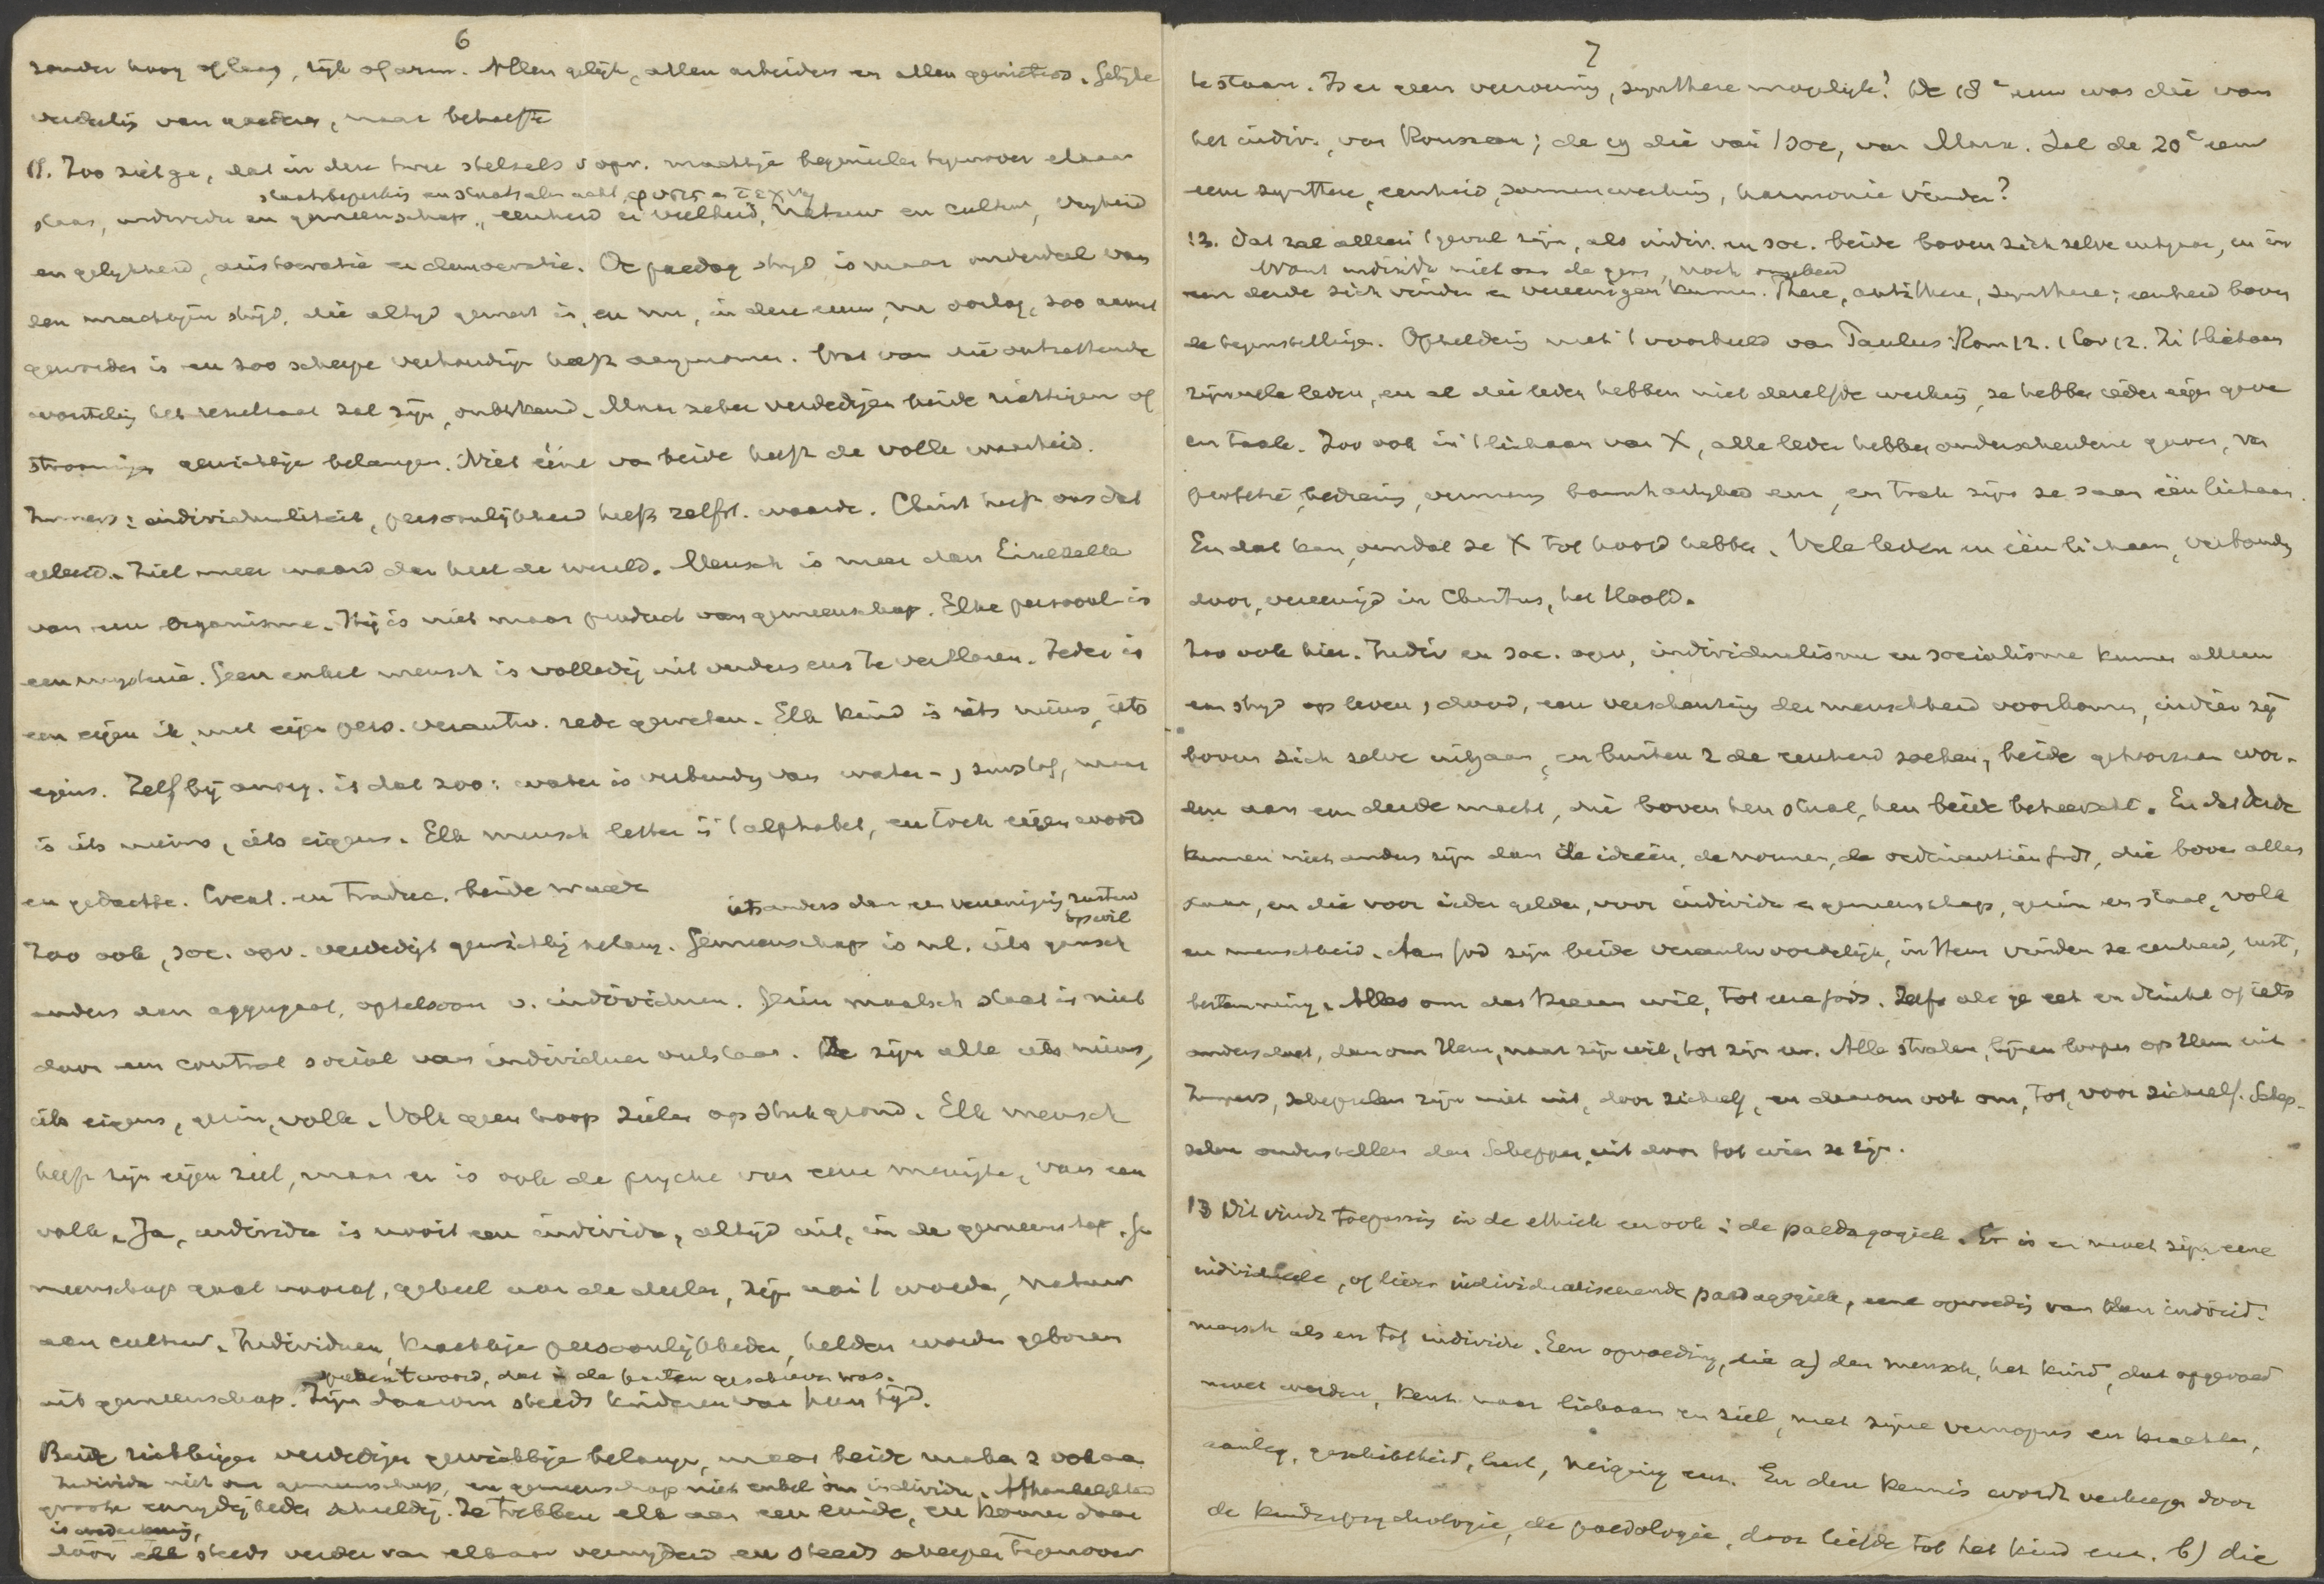 6
zonder hoog of laag, rijk of arm. Allen gelijk, allen arbeiders en allen genieters. Gelijke
verdeeling van goederen, naar behoefte
11. Zoo ziet ge, dat in deze twee stelsels v opv. machtige beginselen tegenover elkaar
staatsbeperking en staatsalmacht, φυσις en τεχνη
staan, individu en gemeenschap, eenheid en veelheid, natuur en cultuur, vrijheid
en gelijkheid, aristocratie en democratie. De paedag strijd is maar onderdeel van
den machtigen strijd, die altijd gevoerd is, en nu, in deze eeuw, na oorlog, zoo
geworden is en zoo scherpe verhoudingen heeft aangenomen. Wat van die ontzettende
worsteling het resultaat zal zijn, onbekend. Maar zeker verdedigen beide richtingen of
stroomingen gewichtige belangen. Niet ééne van beide heeft de volle waarheid.
Immers: individualiteit, persoonlijkheid heeft zelfst. waarde. Christ heeft ons dat
geleerd. Ziel meer waard dan heel de wereld. Mensch is meer dan Einzelzelle
van een organisme. Hij is niet maar product van gemeenschap. Elke persoonl. is
een mysterie. Geen enkel mensch is volledig uit ouders enz te verklaren. Ieder is
een eigen ik, met eigen pers. verantw. rede geweten. Elk kind is iets nieuws, iets
eigens. Zelfs bij anorg. is dat zoo: water is verbinding van water-, zuurstof, maar
is iets nieuws, iets eigens. Elk mensch letter in 't alphabet, en toch eigen woord
en gedachte. Creat. en Traduc. beide waarde
iets anders dan een vereeniging rustend
op wil
Zoo ook, soc. opv. verdedigt gewichtig belang. Gemeenschap is nl. iets gansch
anders dan aggregaat, optelsom v. individuen. Gezin maatsch staat is niet
door een contrat social van individuen ontstaan. Ze zijn alle iets nieuws,
iets eigens, gezin, volk. Volk geen hoop zielen op stuk grond. Elk mensch
heeft zijn eigen ziel, maar er is ook de psyche van eene menigte, van een
volk. Ja, individu is nooit een individu, altijd uit, in de gemeenschap. Ge
meenschap gaat vooraf, geheel aan de deelen, zijn aan 't worden, natuur
aan cultuur. Individuen, krachtige persoonlijkheden, helden worden geboren
spreken 't woord, dat in de harten geschreven was.
uit gemeenschap. Zijn daarom steeds kinderen van hun tijd.
Beide richtingen verdedigen gewichtige belangen, maar beide maken z ook aan
Individu niet om gemeenschap, en gemeenschap niet enkel om individu. Afhankelijkheid
groote eenzijdigheden schuldig. Ze trekken elk aan een einde, en komen daar
is wederkeerig,
door elk steeds verder van elkaar verwijderd en steeds scherper tegenover
7
te staan. Is er geen verzoening, synthese mogelijk? De 18e eeuw was die van
het indiv., van Rousseau; de 19 die van 't soc, van Marx. Zal de 20e eeuw
eene synthese, eenheid, samenwerking, harmonie vinden?
12. Dat zal alleen 't geval zijn, als indiv. en soc. beide boven zich zelve uitgaan, en in
Want individu niet om de gem, noch omgekeerd
een derde zich vinden en vereenigen kunnen. These, antithese, synthese; eenheid boven
de tegenstellingen. Opheldering met 't voorbeeld van Paulus Rom 12. 1 Cor 12. In 't lichaam
zijn vele leden, en al die leden hebben niet dezelfde werking, ze hebben ieder eigen gave
en taak. Zoo ook in 't lichaam van X, alle leden hebben onderscheidene gaven, van
profetie, bediening, vermaning barmhartigheid enz, en toch zijn ze saam één lichaam.
En dat kan, omdat ze X tot hoofd hebben. Vele leden en één lichaam, verbonden
door, vereenigd in Christus, het Hoofd.
Zoo ook hier. Indiv en soc. opv, individualisme en socialisme kunnen alleen
een strijd op leven, dood, een verscheuring der menschheid voorkomen, indien zij
boven zich zelve uitgaan, en buiten z de eenheid zoeken, beide gehoorzaam wor-
den aan een derde macht, die boven hen staat, hen beide beheerscht. En dat derde
kunnen niet anders zijn dan de ideeën, de normen, de ordinantiën Gods, die boven alles
staan, en die voor ieder gelden, voor individu en gemeenschap, gezin en staat, volk
en menschheid. Aan God zijn beide verantwoordelijk, in Hem vinden ze eenheid, rust,
bestemming. Alles om des Heeren wil, tot eere Gods. Zelfs als ge eet en drinkt of iets
anders doet, dan om Hem, naar zijn wil, tot zijn eer. Alle stralen, lijnen loopen op Hem uit
Immers, schepselen zijn niet uit, door zichzelf, en daarom ook om, tot, voor zichzelf. Schep-
selen onderstellen den Schepper, uit door tot wien ze zijn.
13 Dit vindt toepassing in de ethiek en ook in de paedagogiek. Er is en moet zijn eene
individueele, of liever individualiseerende paedagogiek, eene opvoeding van den individ.
mensch als en tot individu. Een opvoeding, die a) den mensch, het kind, dat opgevoed
moet worden, kent naar lichaam en ziel, met zijne vermogens en krachten,
aanleg, geschiktheid, lust, neiging enz. En deze kennis wordt verkregen door
de kinderpsychologie, de paedologie, door liefde tot het kind enz. b) die